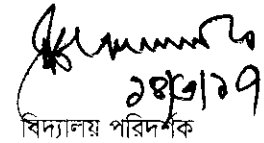 ১৪/৩/১৭
বিদ্যালয় পরিদর্শক